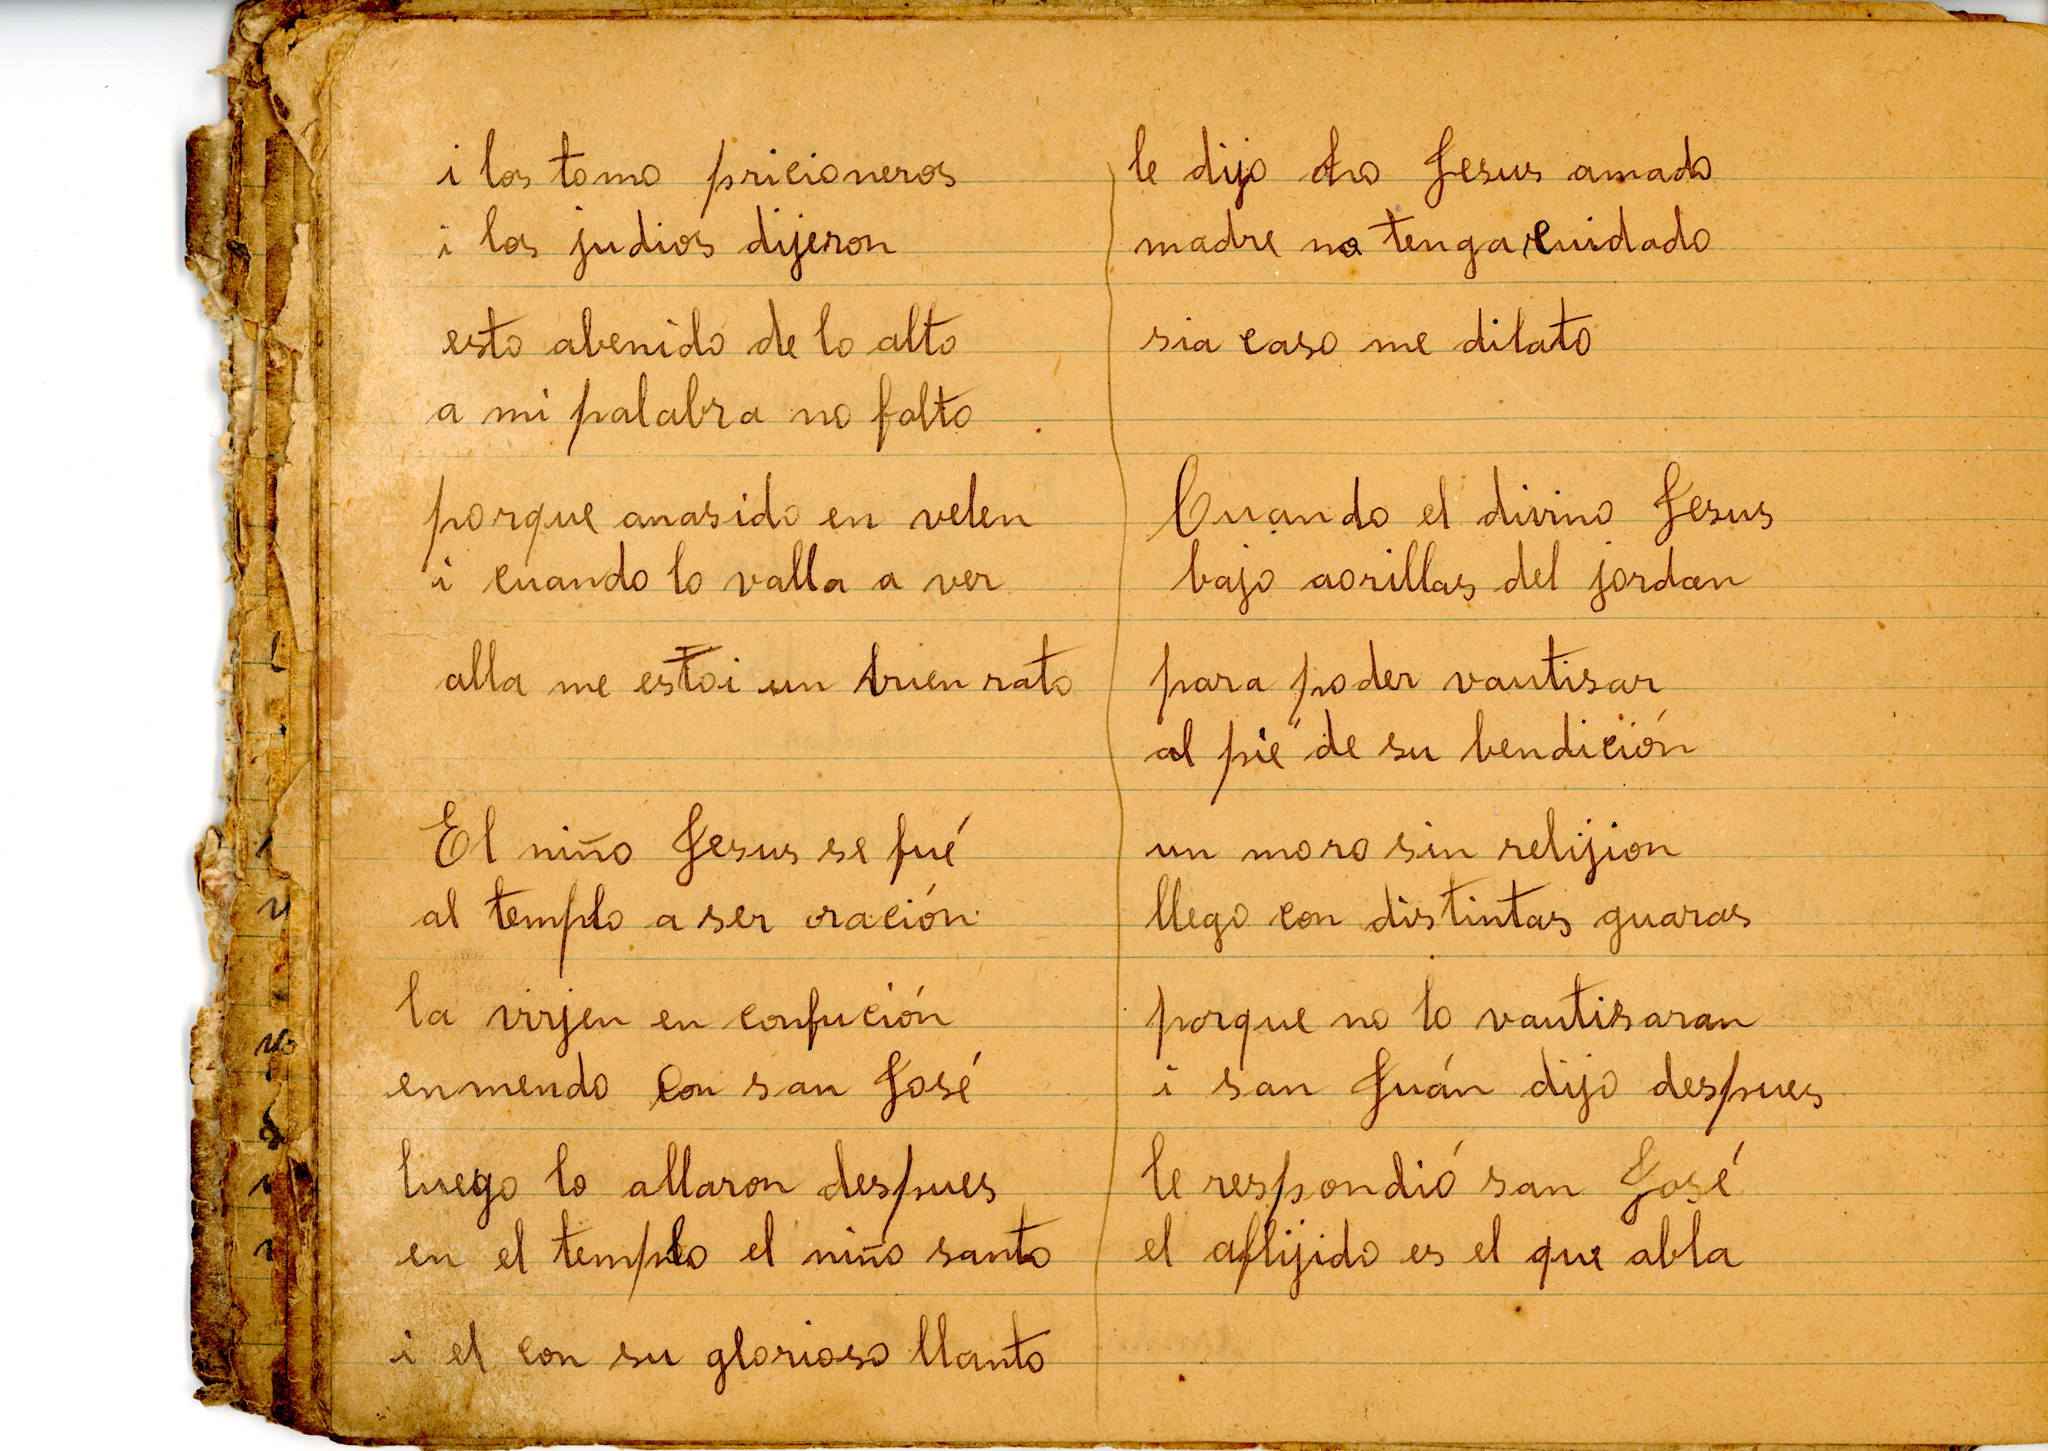 i los tomo pricioneros
i los judios dijeron
esto abenido de lo alto
a mi palabra no falto
porque anasido en velen
i cuando lo valla a ver
alla me estoi un buen rato
El niño Jesus se fué
al templo a ser oración
la virjen en confución
enmendo con san José
luego lo allaron despues
en el templo el niño santo
i el con su glorioso llanto
le dijo Jesus amado
madre no tenga cuidado
sia caso me dilato
Cuando el divino Jesus
bajo aorillas del jordan
para poder vautisar
al pié de su bendición
un moro sin relijion
llego con distintas guaras
porque no lo vautisaran
i san Juán dijo despues
le respondió san José
el aflijido es el que abla